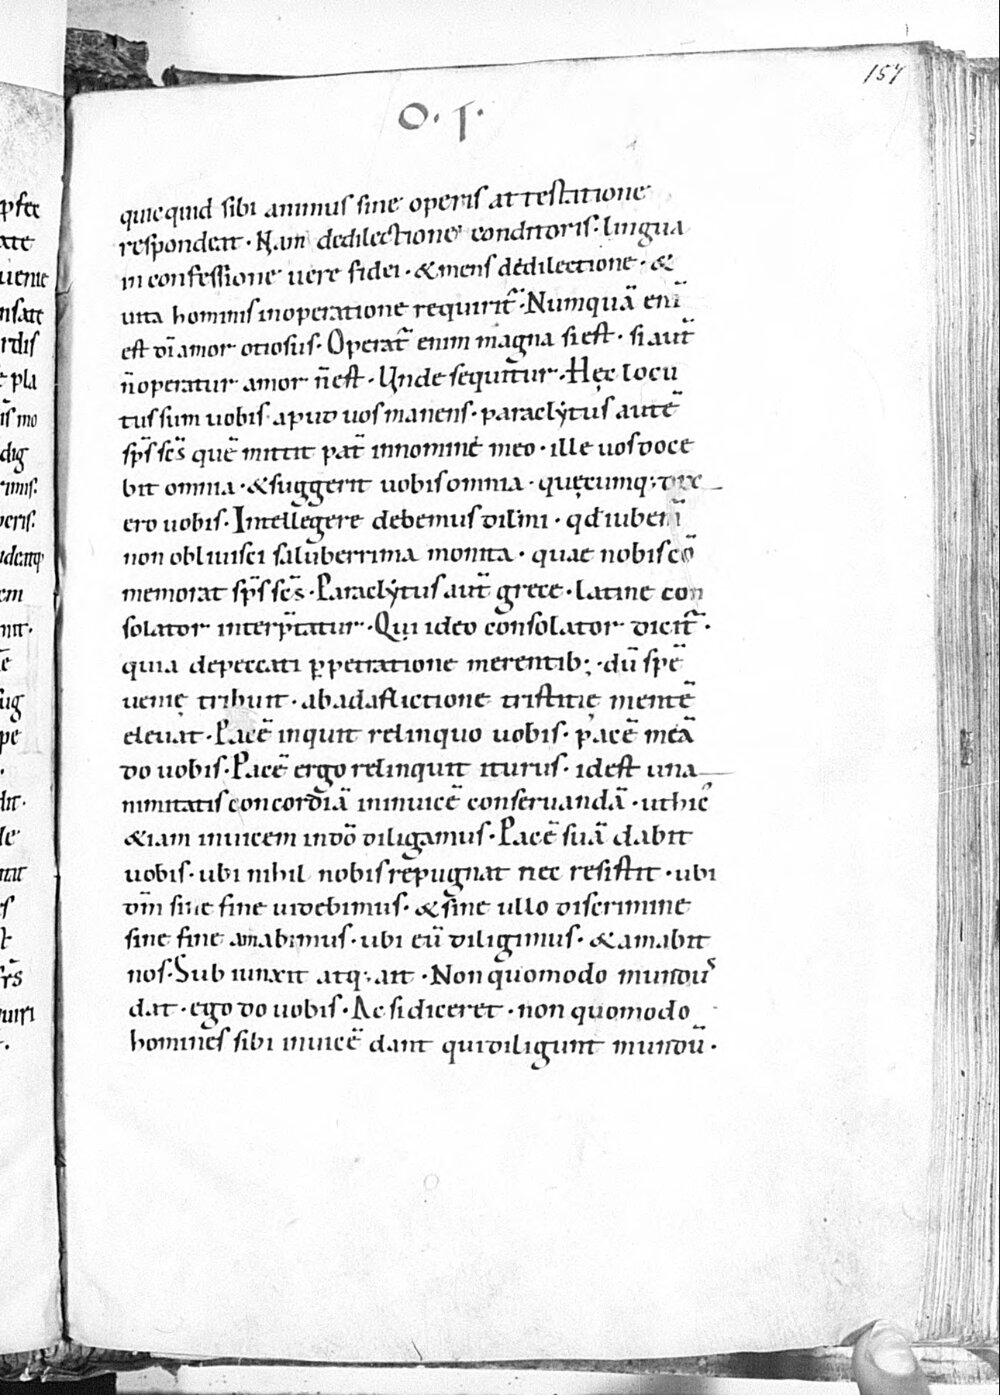 157
O. I.
quicquid sibi animus sine operis attestatione
respondeat. Nam dedilectione conditoris. lingua
in confessione uere fidei. & mens dedilectione. &
uita hominis inoperatione requirit̄. Numquā eni̅
est dī amor otiosus. Operat̄ enim magna si est. si aut̄
n̄ operatur amor n̄ est. Unde sequitur. Hęc locu
tus sum uobis apud uos manens. paraclytus autē
sp̄s sc̄s quē mittit pat̄ innomine meo. ille uos doce
bit omnia. & suggerit uobis omnia. quęcumq; dix
ero uobis. Intellegere debemus dil̄mi. qđ iubem̄
non obliuisci saluberrima monita. quae nobis cō
memorat sp̄s sc̄s. Paraclytus aut̄ grece. latine con
solator interp̄tatur. Qui ideo consolator dicit̄.
quia depeccati ꝑpetratione merentib;. dū spē
uenię tribuit. abadaflictione tristitię mentē
eleuat. Pacē inquit relinquo uobis. pacē meā
do uobis. Pacē ergo relinquit iturus. idest una
nimitatis concordiā inuicē conseruandā. ut hic
&iam inuicem indō diligamus. Pacē suā dabit
uobis. ubi nihil nobis repugnat nec resistit. ubi
dm̄ sine fine uidebimus. & sine ullo discrimine
sine fine amabimus. ubi eū diligimus. & amabit
nos. Subiunxit atq; ait. Non quomodo mundus
dat. ego do uobis. Ac si diceret. non quomodo
homines sibi inuicē dant qui diligunt mundū.